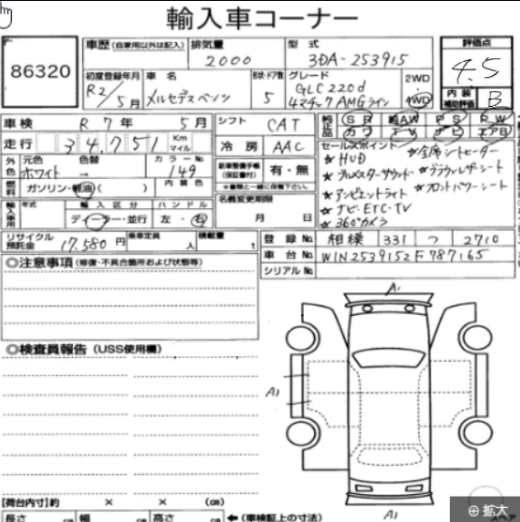 輸入車コーナー
86320
車歴 (自家用以外は記入) 排気量 型式 評価点
2000 3DA-253915 4.5
初度登録年月 車名 形状・ドア数 グレード 2WD 内装補助評価
R2/5月 メルセデスベンツ 5 GLC220d 4マチックAMGライン 4WD B
車検 R 7年 5月 シフト CAT
走行 34,751 Km マイル 冷房 AAC
純正品 SR 純AW PS PW
カワ TV ナビ エアB
外色 元色 色替 カラーNo.
ホワイト → 149
(保証書付) 有・無
セールスポイント
*HUD *全席シートヒーター
*ブルメスターサウンド *ブラウンレザーシート
*アンビエントライト *フロントパワーシート
*ナビ・ETC・TV
*360°カメラ
燃料 ガソリン・軽油 ( ) 内装色
輸入車用 年式 輸入区分 ハンドル
ディーラー・並行 左・右
名義変更期限
月 日
リサイクル預託金 17,580円 乗車定員 人 積載量 t
登録No. 相模 331 つ 2710
車台No. W1N2539152F787165
シリアルNo.
◎注意事項 (修復・不具合箇所および状態等)
◎検査員報告 (USS使用欄)
A1
A1
A1
【荷台内寸】約 × × (cm)
長さ cm 幅 cm 高さ cm ←(車検証上の寸法)
拡大